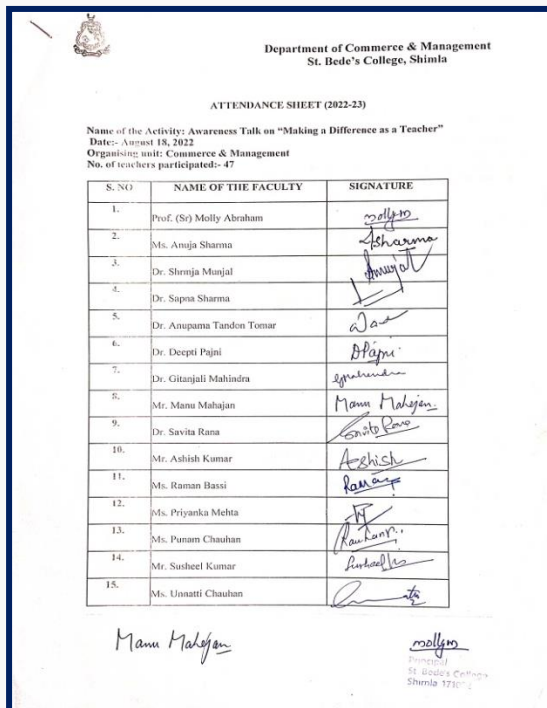 Department of Commerce & Management
St. Bede's College, Shimla
ATTENDANCE SHEET (2022-23)
Name of the Activity: Awareness Talk on "Making a Difference as a Teacher"
Date:- August 18, 2022
Organising unit: Commerce & Management
No. of teachers participated:- 47
S. NO NAME OF THE FACULTY SIGNATURE
1. Prof. (Sr) Molly Abraham mollym
2. Ms. Anuja Sharma Asharma
3. Dr. Shrinja Munjal
4. Dr. Sapna Sharma
5. Dr. Anupama Tandon Tomar
6. Dr. Deepti Pajni DPajni
7. Dr. Gitanjali Mahindra
8. Mr. Manu Mahajan Manu Mahajan.
9. Dr. Savita Rana Savita Rana
10. Mr. Ashish Kumar Ashish
11. Ms. Raman Bassi Raman
12. Ms. Priyanka Mehta
13. Ms. Punam Chauhan
14. Mr. Susheel Kumar Susheel
15. Ms. Unnatti Chauhan
Manu Mahajan mollym
Principal
St. Bede's College
Shimla